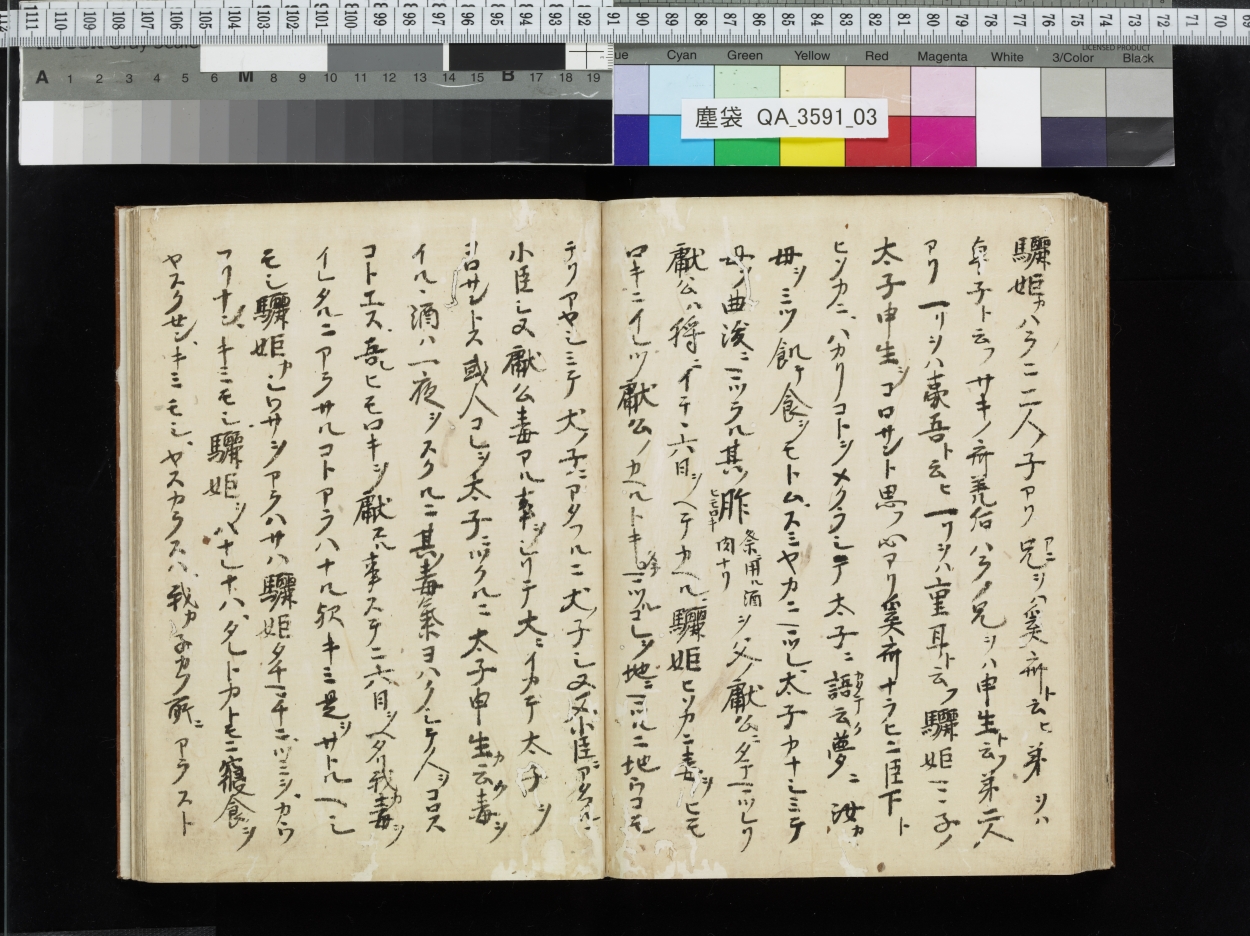 塵袋 QA_3591_03
Cyan Green Yellow Red Magenta White 3/Color Black
LICENSED PRODUCT
A 1 2 3 4 5 6 M 8 9 10 11 12 13 14 15 B 17 18 19
驪姫カハラニ二人ノ子アリ兄ヲハ奚齊ト云ヒ弟ヲハ
卓子ト云フサキノ齊姜カハラノ兄ヲハ申生ト云フ弟二人
アリ一リヲハ夷吾ト云ヒ一リヲハ重耳ト云フ驪姫ミコ子ノ
太子申生ヲコロサント思フ心アリ奚齊ナラヒニ臣下ト
ヒソカニハカリコトヲメクラシテ太子ニ語云夢ニ汝カ
母ヲミツ飢テ食ヲモトムスミヤカニマツレ太子カナシミテ
母ヲ曲沃ニマツラル其ノ胙祭用ル酒肉ナリヲ父ノ獻公ニタテマツレリ
獻公ハ狩ニイテヽ六日ヲヘテカヘル驪姫ヒソカニ毒ヲヒモ
ロキニイレツ獻公ノカヘルトキマツルコレヲ地ニマツルニ地ウコモ
チリアヤシミテ犬ノ子ニアタフルニ犬ノ子シヌ又小臣ニアタフルニ
小臣シヌ獻公毒アル事ヲシリテ大ニイカテ太子ヲ
コロサントス或人コレヲ太子ニツクルニ太子申生云毒ヲ
イルヽ酒ハ一夜ヲスクルニ其ノ毒氣ヨハクシテ人ヲコロス
コトエス吾レヒモロキヲ獻スル事ステニ六日ヲヘタリ我カ毒ヲ
イレタルニアラサルコトアラハナル歟キミ是ヲサトルヘシ
モシ驪姫カシワサヲアラハサハ驪姫タチマチニツミヲカウ
フリナンキミモシ驪姫ヲ
ヤスクセシキミモシヤスカラスハ我カ子カラ所ニアラスト